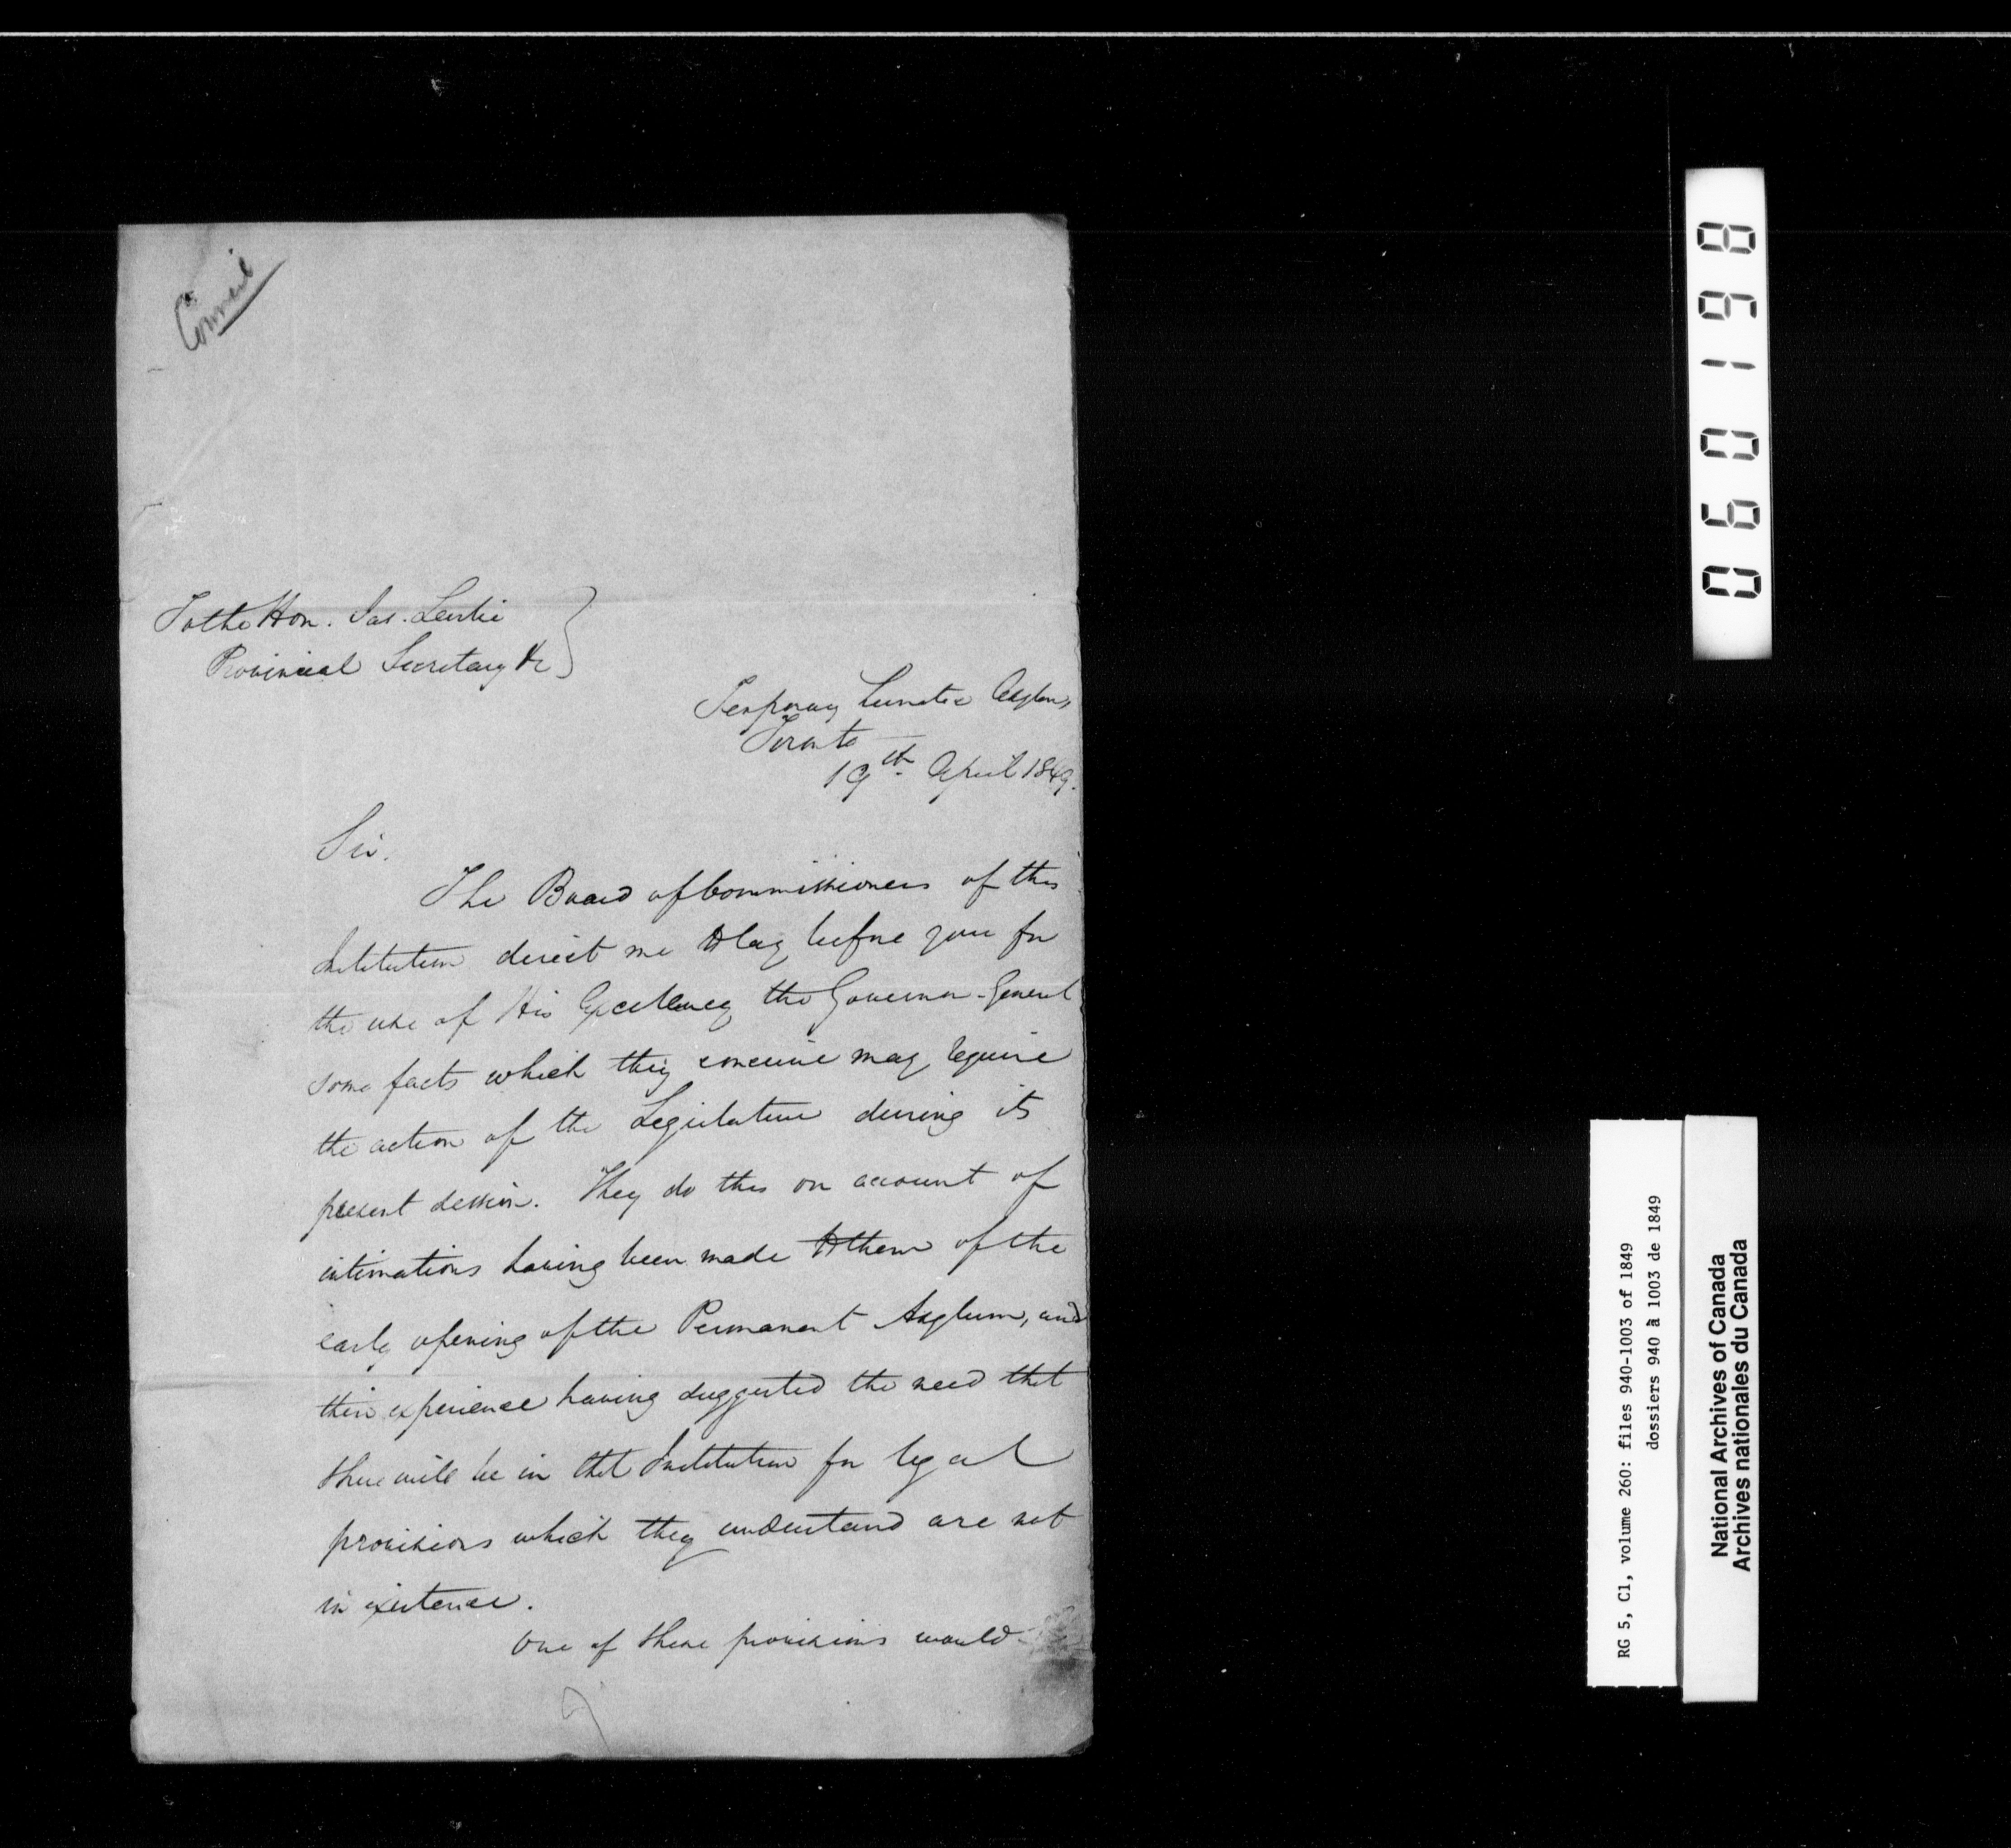 Council
To the Hon. Jas. Leslie
Provincial Secretary &c
Temporary Lunatic Asylum,
Toronto
19th April 1849.
Sir.
The Board of Commissioners of this
Institution direct me to lay before you for
the use of His Excellency the Governor-General
some facts which they conceive may require
the action of the Legislature during its
present session. They do this on account of
intimations having been made to them of the
early opening of the Permanent Asylum, and
their experience having suggested the need that
there will be in that Institution for legal
provisions which they understand are not
in existence.
One of these provisions would
060198
RG 5, C1, volume 260: files 940-1003 of 1849
dossiers 940 à 1003 de 1849
National Archives of Canada
Archives nationales du Canada